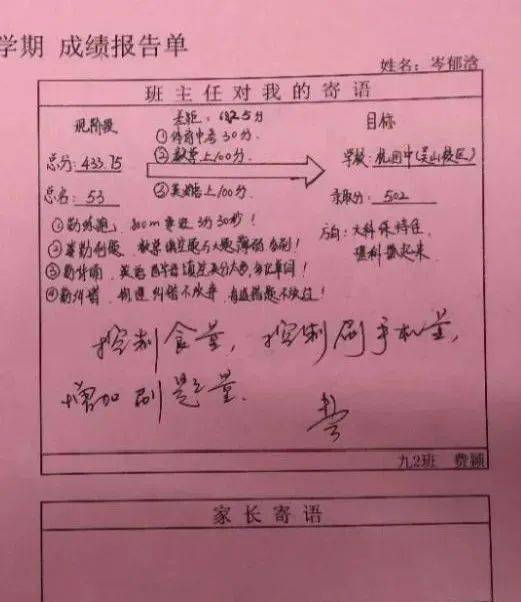 学期 成绩报告单
姓名：岑郁涵
班主任对我的寄语
现阶段
总分：433.75
总名：53
差距：68.25分
①体育中考30分.
②数学上100分.
③英语上100分.
目标
学校：杭四中(吴山校区)
录取分：502
方向：文科保持住
理科赶起来
①勤练跑，800m 3分30秒！
②勤刷题，数学填空题与大题
③勤背诵，英语填空
④勤纠错，纠错不放弃，有道错题不放过！
控制食量，控制刷手机量，
增加刷题量.
费
九2班 费颖
家长寄语